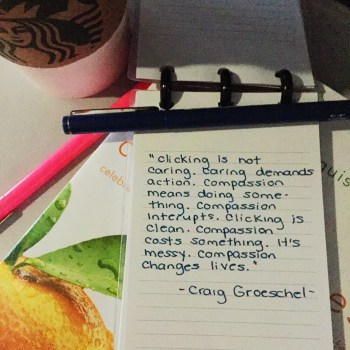 "Clicking is not
caring. Caring demands
action. Compassion
means doing some-
thing. Compassion
interupts. Clicking is
clean. Compassion
costs something. It's
messy. Compassion
changes lives."
-Craig Groeschel-